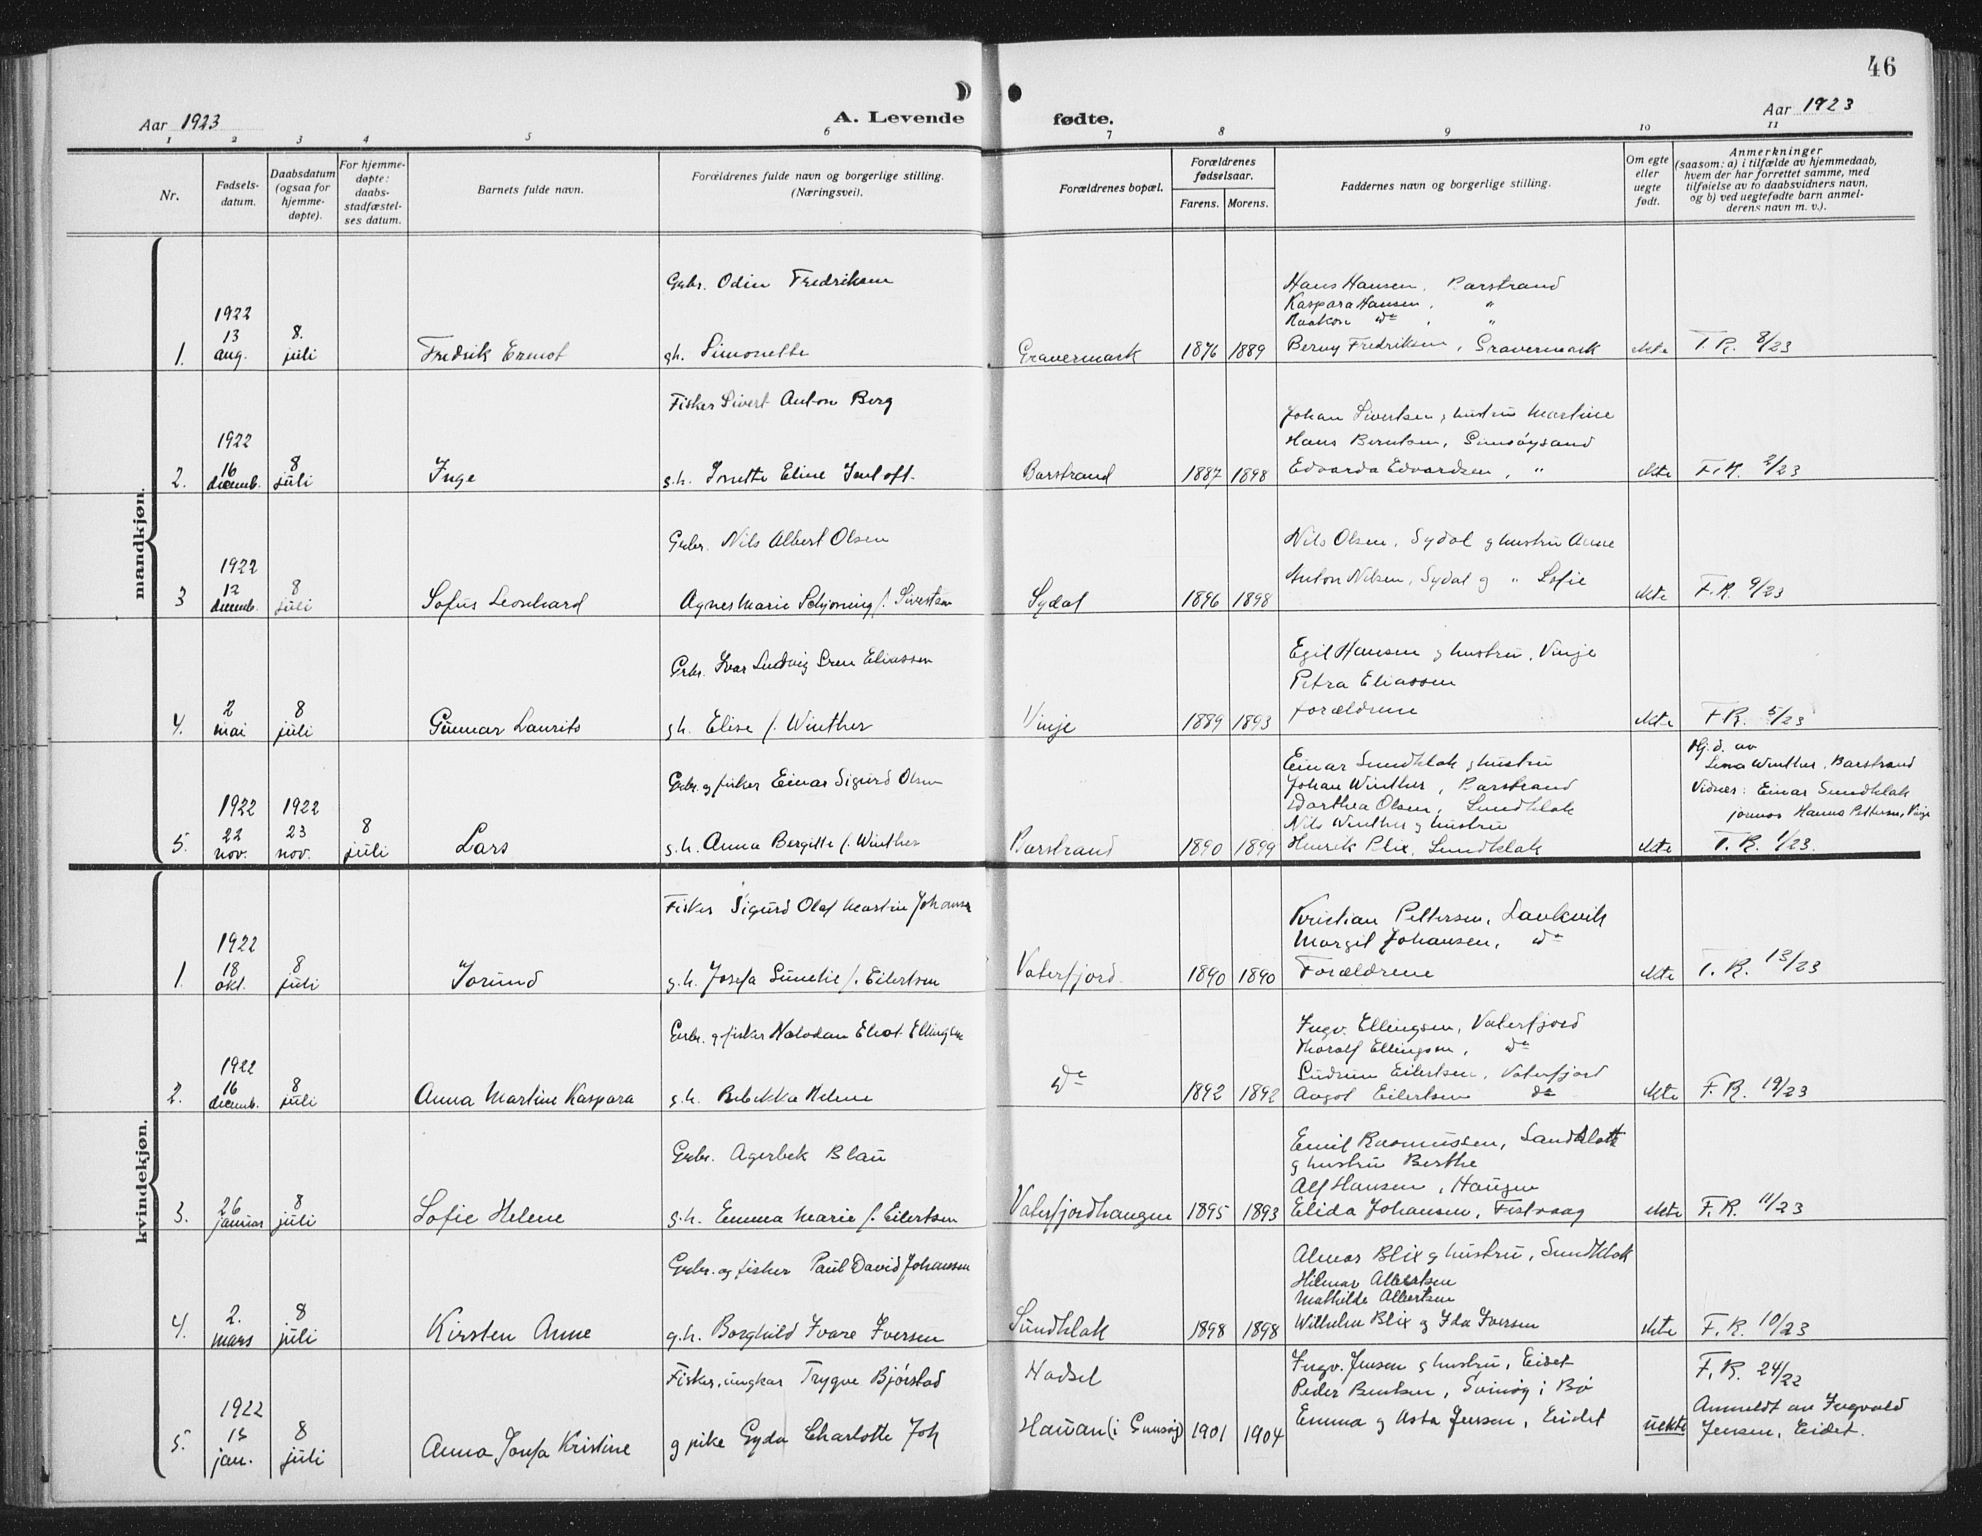 46
Aar 1923
A. Levende
fødte.
Aar 1923
1 2 3 4 5 6 7 8 9 10 11
Nr.
Fødsels-
datum.
Daabsdatum
(ogsaa for
hjemme-
døpte).
For hjemme-
døpte:
daabs-
stadfæstel-
ses datum.
Barnets fulde navn.
Forældrenes fulde navn og borgerlige stilling.
(Næringsvei).
Forældrenes bopæl.
Forældrenes
fødselsaar.
Farens. Morens.
Faddernes navn og borgerlige stilling.
Om egte
eller
uegte
født.
Anmerkninger
(saasom: a) i tilfælde av hjemmedaab,
hvem der har forrettet samme, med
tilføielse av to daabsvidners navn,
og b) ved uegtefødte barn anmel-
derens navn m. v.).
mandkjøn.
1.
1922
13
aug.
8.
juli
Fredrik Ernst
Gbr. Odin Fredriksen
gh. Simonette
Gravermark
1876 1889
Hans Hansen, Barstrand
Kaspara Hansen, "
Haakon do, "
Berny Fredriksen, Gravermark
ekte
F. R. 8/23
2.
1922
16
decemb.
8
juli
Inge
Fisker Sivert Anton Berg
g.h. Jonette Eline
Barstrand
1887 1898
Johan Sivertsen og hustru Martine
Hans Berntsen, Gimsøysand
Edvarda Edvardsen, "
ekte
F. R. 2/23
3
1922
12
decemb.
8
juli
Sofus Leonhard
Gbr. Nils Albert Olsen
Agnes Marie Schjøning f. Sivertsen
Sydal
1896 1898
Nils Olsen, Sydal og hustru Anne
Anton Nilsen, Sydal og " Sofie
ekte
F. R. 9/23
4.
2
mai
8
juli
Gunnar Laurits
Gbr. Ivar Ludvig Eliassen
gh. Elise f. Winther
Vinje
1889 1893
Egil Hansen og hustru, Vinje
Petra Eliassen
forældrene
ekte
F. R. 5/23
5.
1922
22
nov.
1922
23
nov.
8
juli
Lars
Gbr. og fisker Einar Sigurd Olsen
g.h. Anna Bergitte f. Winther
Barstrand
1890 1899
Einar Sundklak og hustru
Johan Winther, Barstrand
Dorthea Olsen, Sundklak
Nils Winther og hustru
Henrik Blix, Sundklak
ekte
Hj.d. av
Lina Winther, Barstrand
Vidner: Einar Sundklak
jormor Hanna Pettersen, Vinje
F. R. 1/23.
kvindekjøn.
1.
1922
18
okt.
8
juli
Jorund
Fisker Sigurd Olaf Martin Johansen
g.h. Josefa f. Eilertsen
Vaterfjord.
1890 1890
Kristian Pettersen, Laukvik
Margit Johansen, do
Forældrene
ekte
F. R. 13/23
2.
1922
16
decemb.
8
juli
Anna Martine Kaspara
Gbr. og fisker Ellingsen
g.h. Rebekka Helene
do
1892 1892
Ingv. Ellingsen, Vaterfjord
Thoralf Ellingsen, do
Gudrun Eilertsen, Vaterfjord
Angot Eilertsen do
ekte
F. R. 19/23
3.
26
januar
8
juli
Sofie Helene
Gbr. Agerbek Blau
g.h. Emma Marie f. Eilertsen
Vaterfjordhaugen
1895 1893
Emil Rasmussen, Sundklak
og hustru Berthe
Alf Hansen, Haugen
Elida Johansen, Festvaag
ekte
F. R. 11/23
4.
2.
mars
8
juli
Kirsten Anne
Gbr. og fisker Paul David Johansen
g.h. Borghild Ivare Iversen
Sundklak
1898 1898
Almar Blix og hustru, Sundklak
Hilmar Albertsen
Mathilde Albertsen
Wilhelm Blix og Ida Iversen
ekte
F. R. 10/23
5.
1922
15
jan.
8
juli
Anna Josefa Kristine
Fisker, ungkar Trygve Bjørstad
og pike Gyda Charlotte Joh
Hadsel
Hauan (i Gimsøy)
1901 1904
Ingv. Jensen og hustru, Eidet
Peder Bentsen, Svinøy i Bø
Emma og Asta Jensen, Eidet
uekte
F. R. 24/22
Anmeldt av Ingvald
Jensen, Eidet.